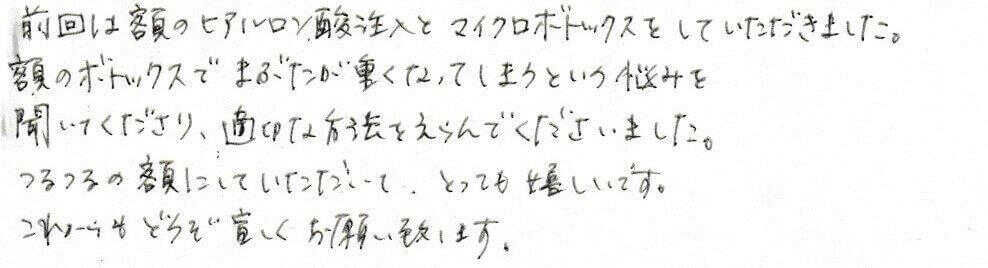 前回は額のヒアルロン酸注入とマイクロボトックスをしていただきました。
額のボトックスでまぶたが重くなってしまうという悩みを
聞いてくださり、適切な方法をえらんでくださいました。
つるつるの額にしていただいて、とっても嬉しいです。
これからもどうぞ宜しくお願い致します。